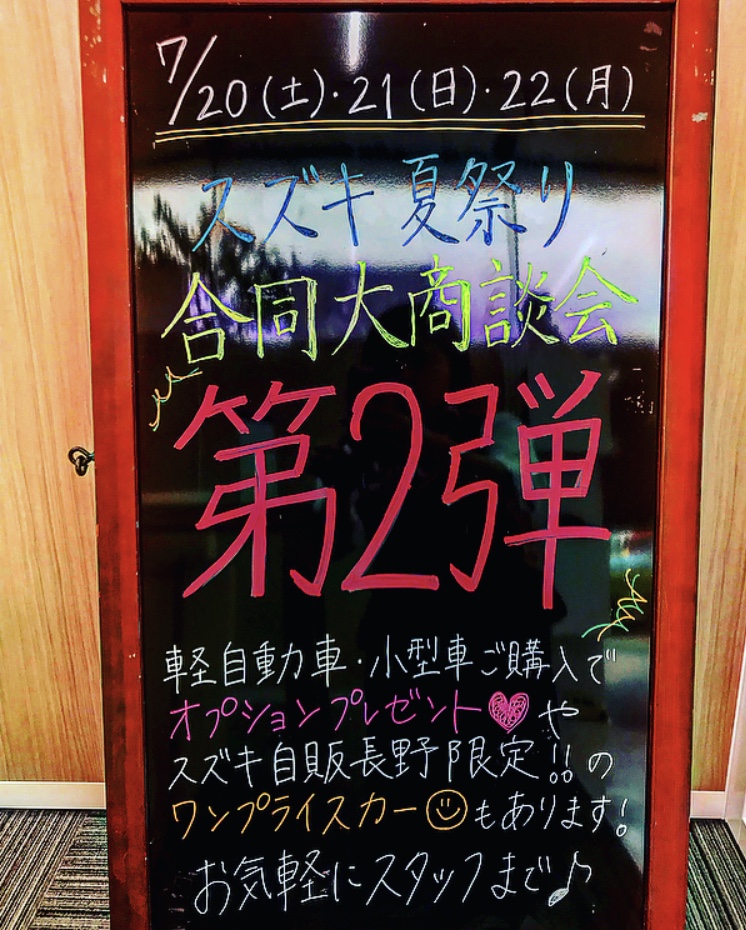 7/20(土)・21(日)・22(月)
スズキ夏祭り
合同大商談会
第2弾
軽自動車・小型車ご購入で
オプションプレゼント♥や
スズキ自販長野限定!!の
ワンプライスカー☺もあります!
お気軽にスタッフまで♪